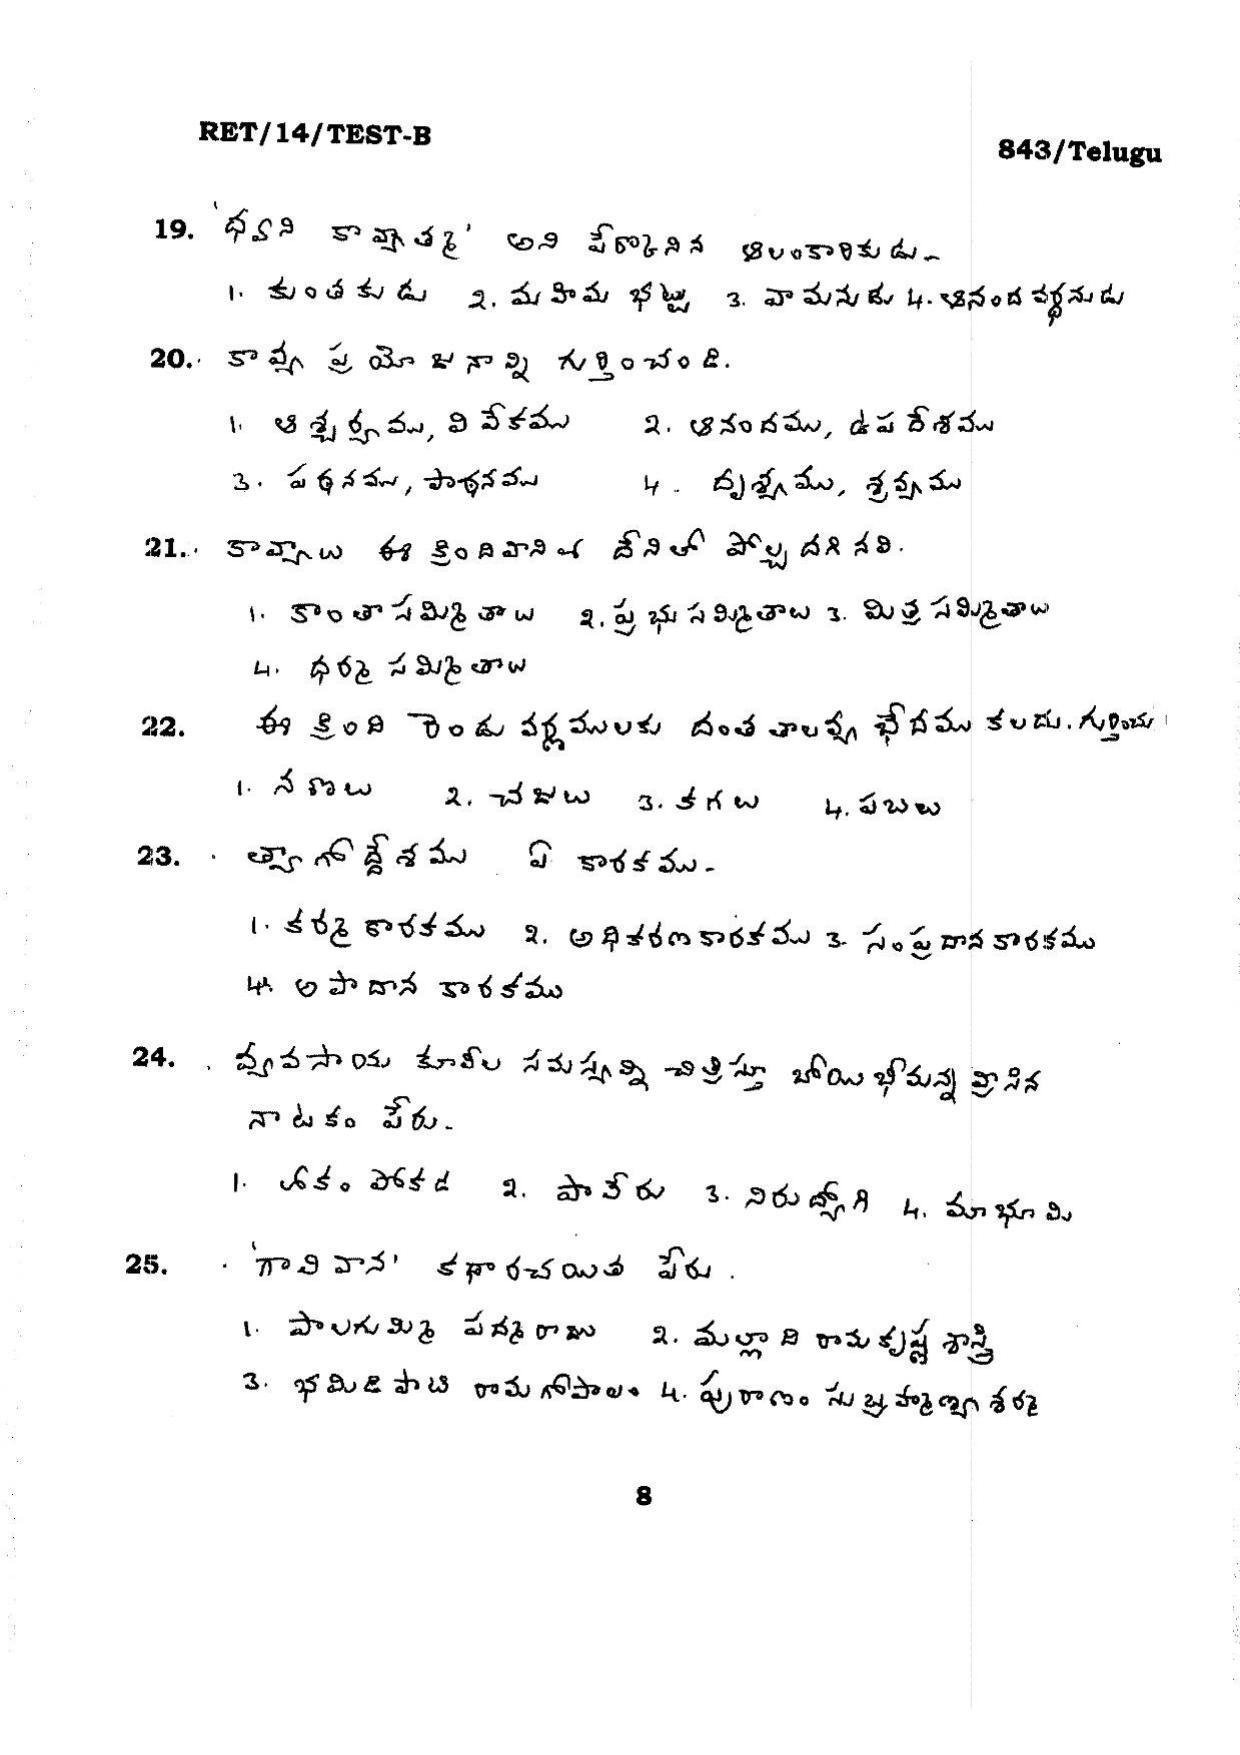 RET/14/TEST-B
843/Telugu
19. 'ధ్వని కావ్యాత్మ' అని పేర్కొనిన ఆలంకారికుడు-
1. కుంతకుడు 2. మహిమ భట్టు 3. వామనుడు 4. ఆనందవర్ధనుడు
20. కావ్య ప్రయోజనాన్ని గుర్తించండి.
1. ఆశ్చర్యము, వివేకము 2. ఆనందము, ఉపదేశము
3. పఠనము, పాఠనము 4. దృశ్యము, శ్రవ్యము
21. కావ్యాలు ఈ క్రిందివానిలో దేనితో పోల్చదగినవి.
1. కాంతాసమ్మితాలు 2. ప్రభుసమ్మితాలు 3. మిత్రసమ్మితాలు
4. ధర్మసమ్మితాలు
22. ఈ క్రింది రెండు వర్ణములకు దంత తాలవ్య భేదము కలదు. గుర్తించు
1. నణలు 2. చజలు 3. కగలు 4. పబలు
23. త్యాగోద్దేశము ఏ కారకము-
1. కర్మకారకము 2. అధికరణకారకము 3. సంప్రదానకారకము
4. అపాదాన కారకము
24. వ్యవసాయ కూలీల సమస్యన్ని చిత్రిస్తూ బోయిభీమన్న వ్రాసిన
నాటకం పేరు-
1. లోకం పోకడ 2. పాలేరు 3. నిరుద్యోగి 4. మాభూమి
25. 'గాలివాన' కథారచయిత పేరు.
1. పాలగుమ్మి పద్మరాజు 2. మల్లాది రామకృష్ణ శాస్త్రి
3. భమిడిపాటి రామగోపాలం 4. పురాణం సుబ్రహ్మణ్యశర్మ
8